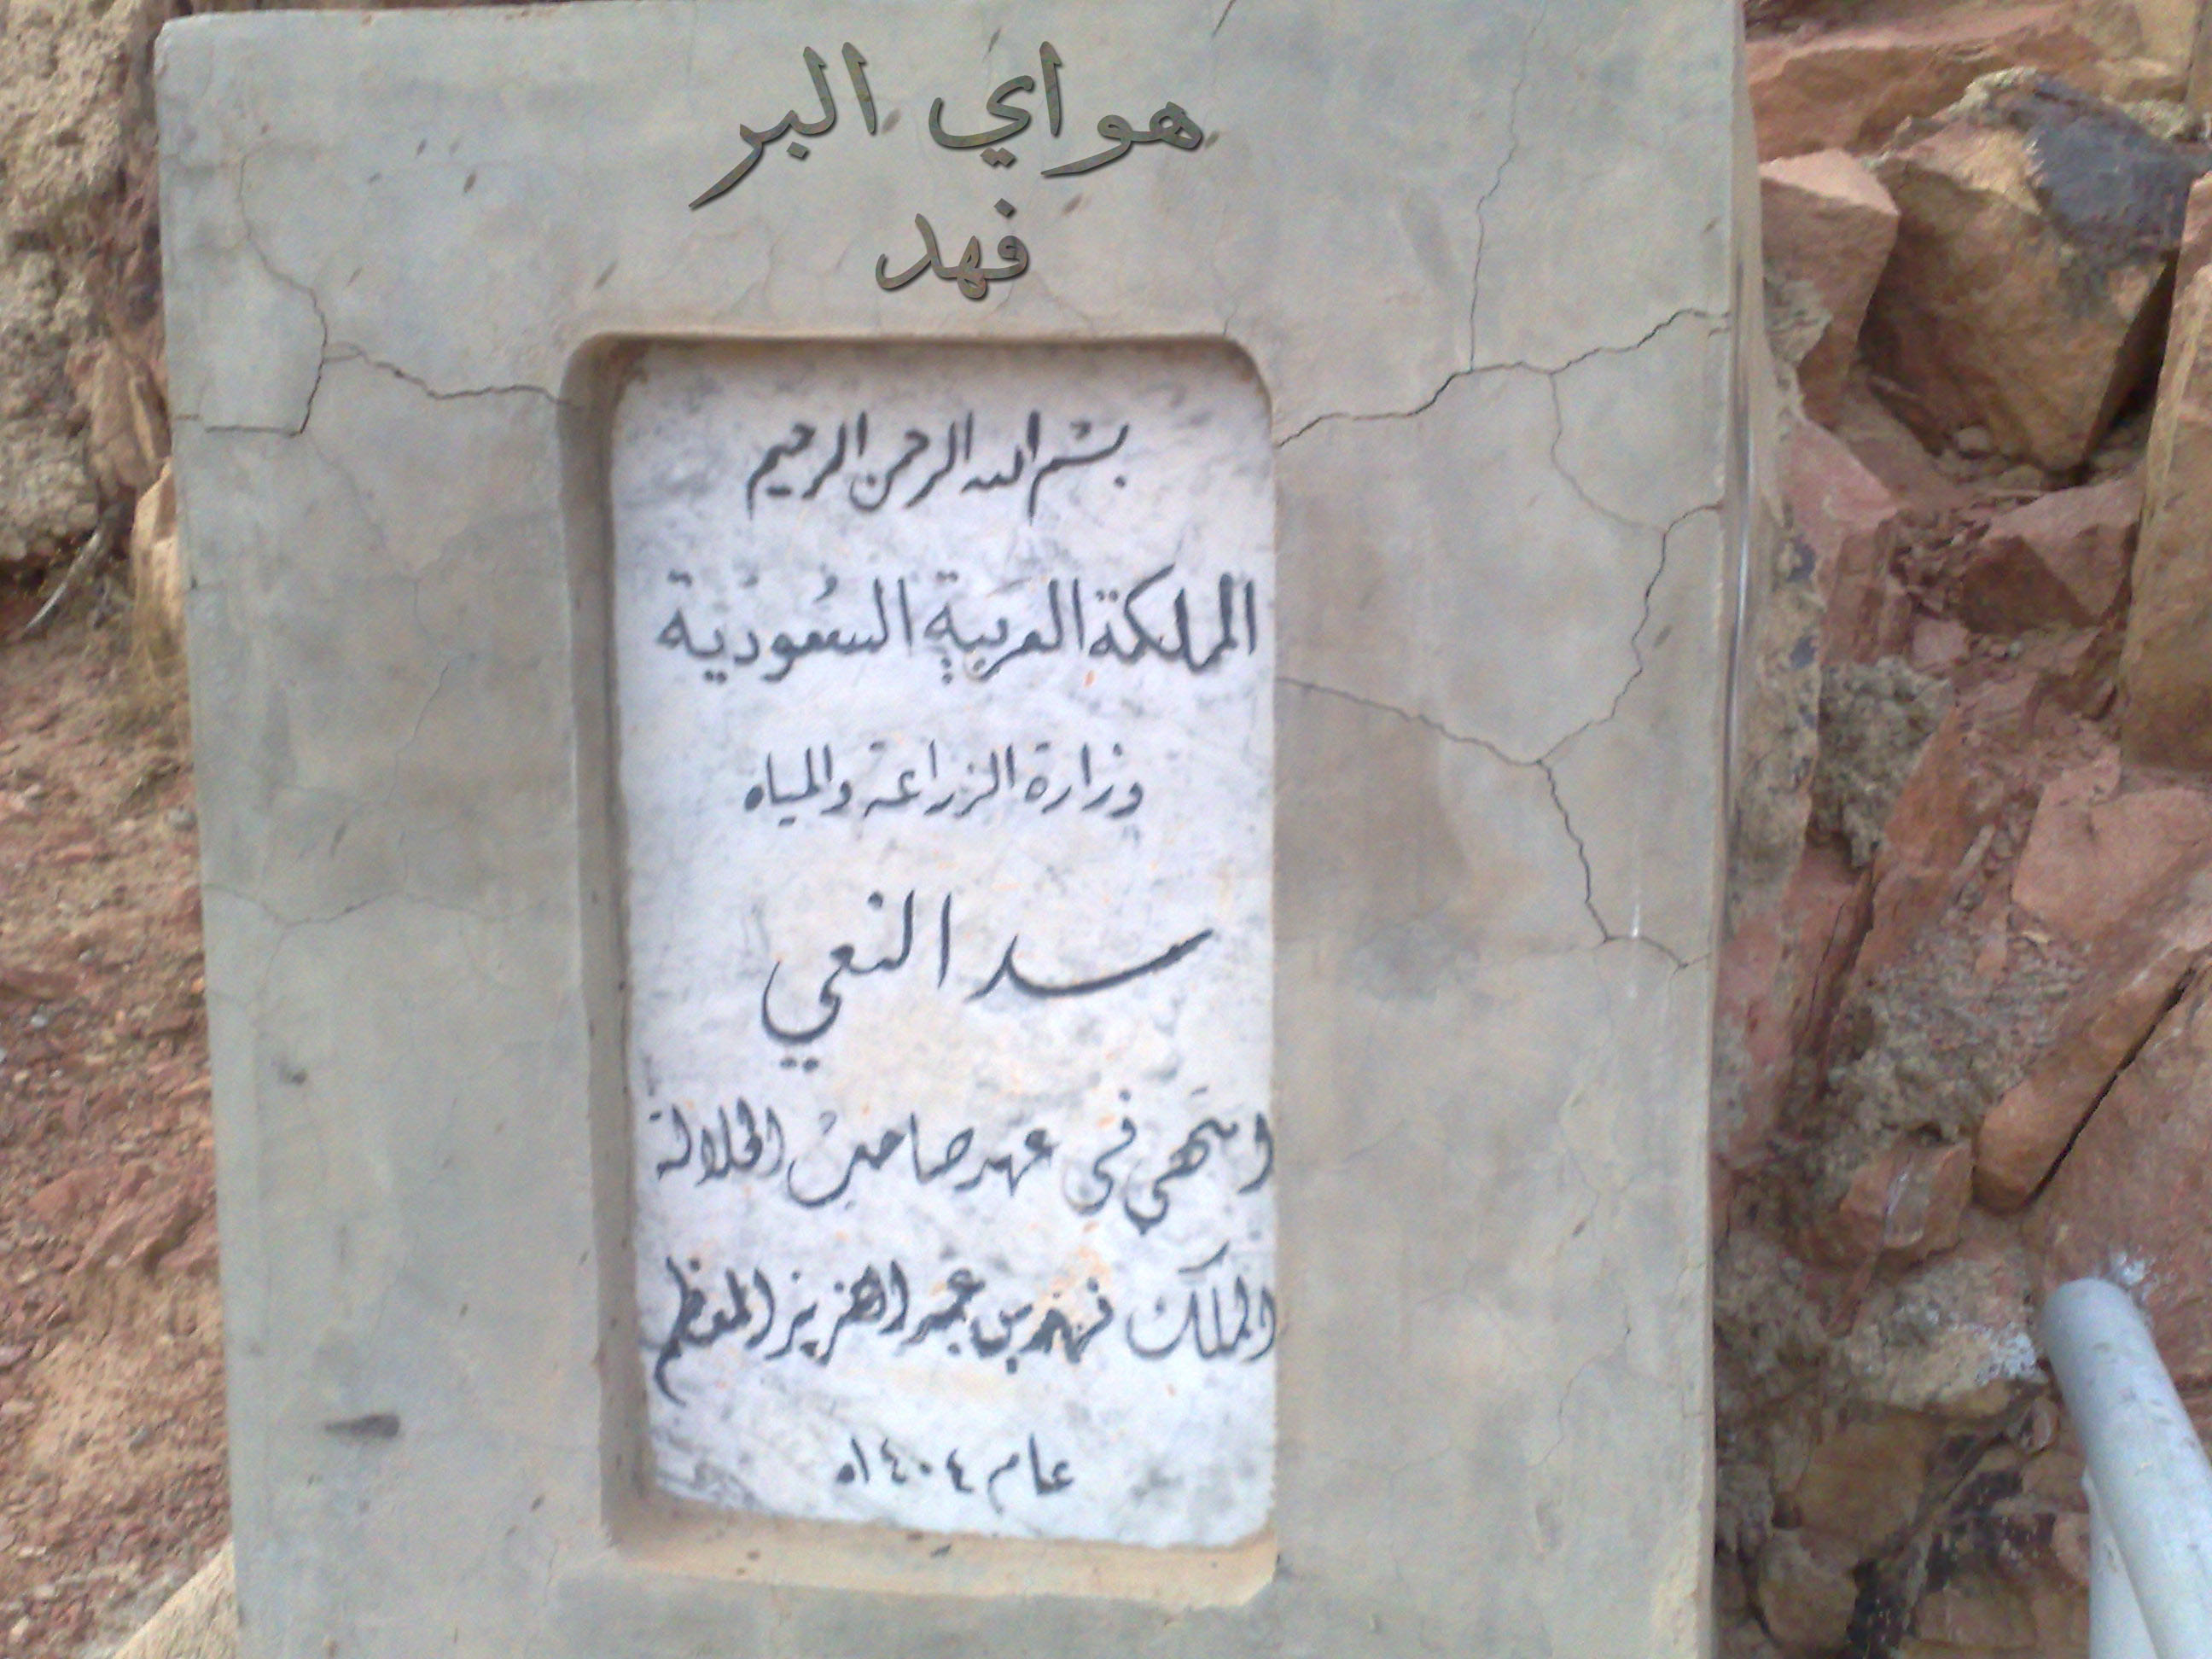 هواي البر
فهد
بسم الله الرحمن الرحيم
المملكة العربية السعودية
وزارة الزراعة والمياه
سد النعي
انتهى في عهد صاحب الجلالة
الملك فهد بن عبد العزيز المعظم
عام ١٤٠٤ه